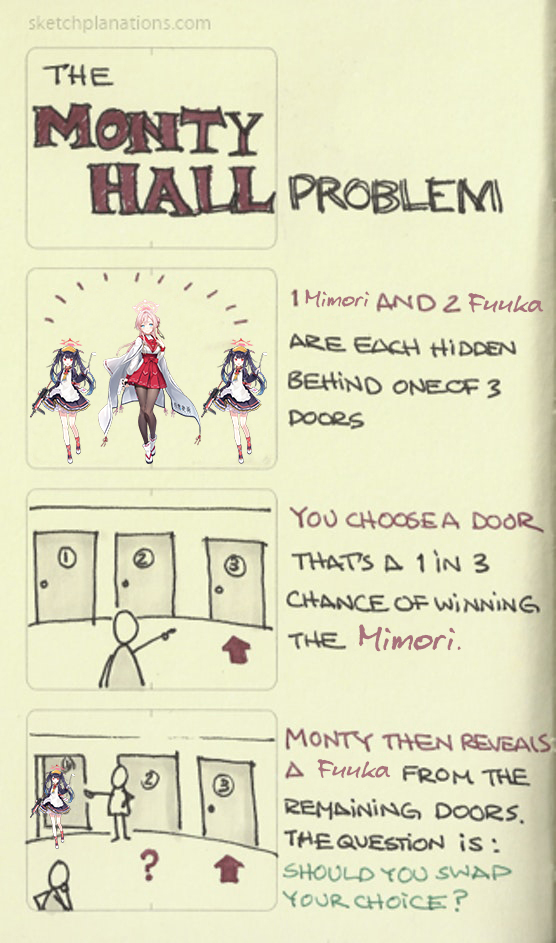 sketchplanations.com
THE
MONTY
HALL PROBLEM
1 Mimori AND 2 Fuuka
ARE EACH HIDDEN
BEHIND ONE OF 3
DOORS
YOU CHOOSE A DOOR
THAT'S A 1 IN 3
CHANCE OF WINNING
THE Mimori.
1 2 3
MONTY THEN REVEALS
A Fuuka FROM THE
REMAINING DOORS.
THE QUESTION IS:
SHOULD YOU SWAP
YOUR CHOICE?
1 2 3
?